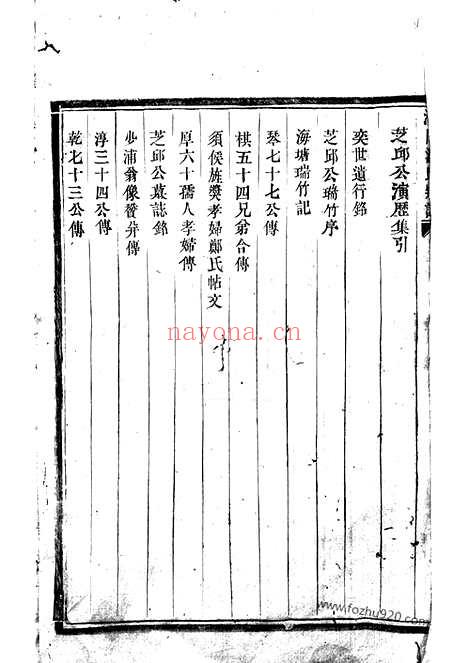 芝邱公演歷集引
奕世遺行銘
芝邱公瑞竹序
海塘瑞竹記
琴七十七公傳
棋五十四兄翁合傳
須侯旌獎孝婦鄭氏帖文
厚六十孺人孝婦傳
芝邱公墓誌銘
少浦翁像贊并傳
淳三十四公傳
乾七十三公傳
nayona.cn
www.fozhu920.com